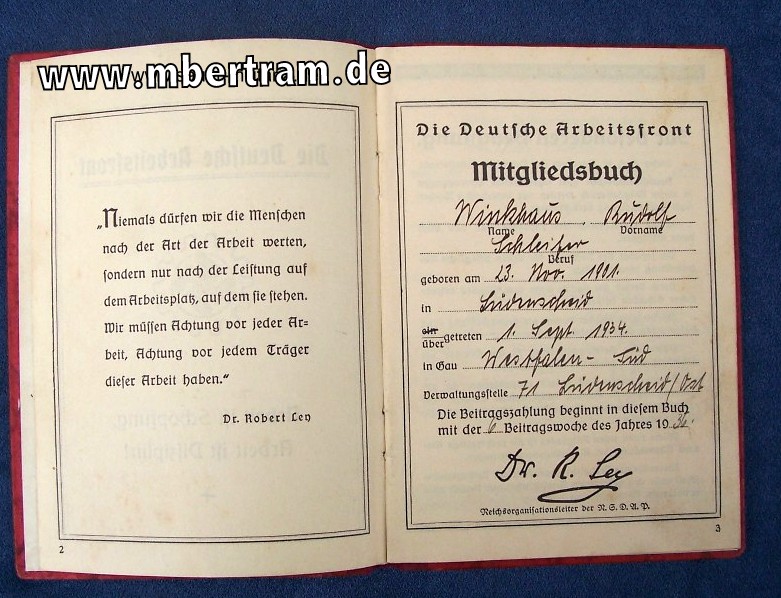 www.mbertram.de
„Niemals dürfen wir die Menschen
nach der Art der Arbeit werten,
sondern nur nach der Leistung auf
dem Arbeitsplatz, auf dem sie stehen.
Wir müssen Achtung vor jeder Ar=
beit, Achtung vor jedem Träger
dieser Arbeit haben.“
Dr. Robert Ley
2
Die Deutsche Arbeitsfront
Mitgliedsbuch
Winkhaus, Rudolf
Name Vorname
Schleifer
Beruf
geboren am 23. Nov. 1901.
in Lüdenscheid
ein
übergetreten 1. Sept. 1934.
in Gau Westfalen - Süd
Verwaltungsstelle 71 Lüdenscheid/Ost
Die Beitragszahlung beginnt in diesem Buch
mit der 6 Beitragswoche des Jahres 1936.
Dr. R. Ley
Reichsorganisationsleiter der N.S.D.A.P.
3